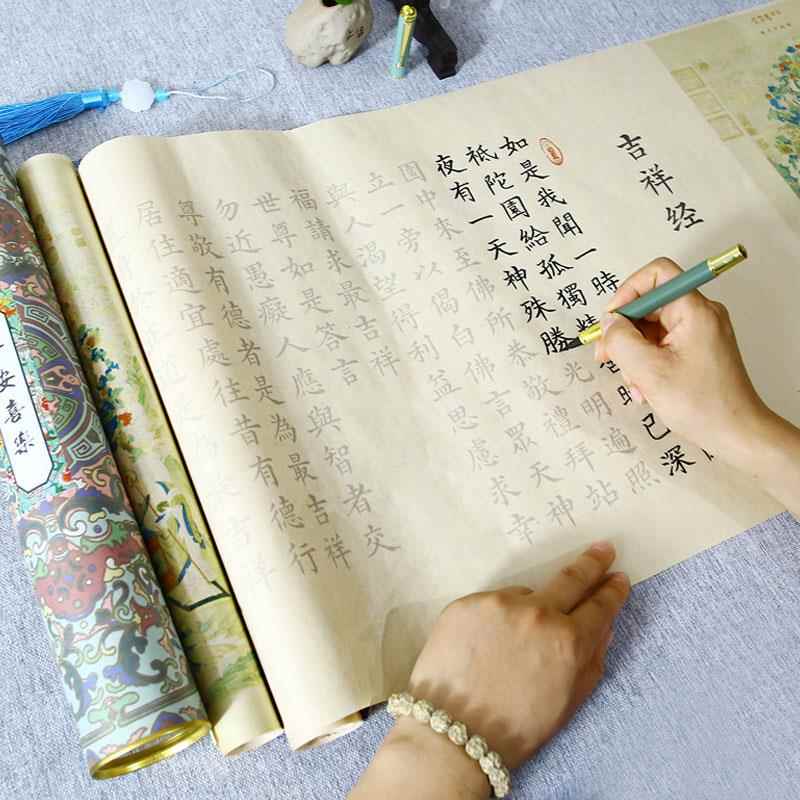 吉祥经
如是我聞一時
祇陀園給孤獨精舍時已深
夜有一天神殊勝光明遍照
園中來至佛所恭敬禮拜站
立一旁以偈白佛言眾天神
與人渴望得利益思慮求幸
福請求最吉祥
世尊如是答言
勿近愚癡人應與智者交
尊敬有德者是為最吉祥
居住適宜處往昔有德行
安喜樂